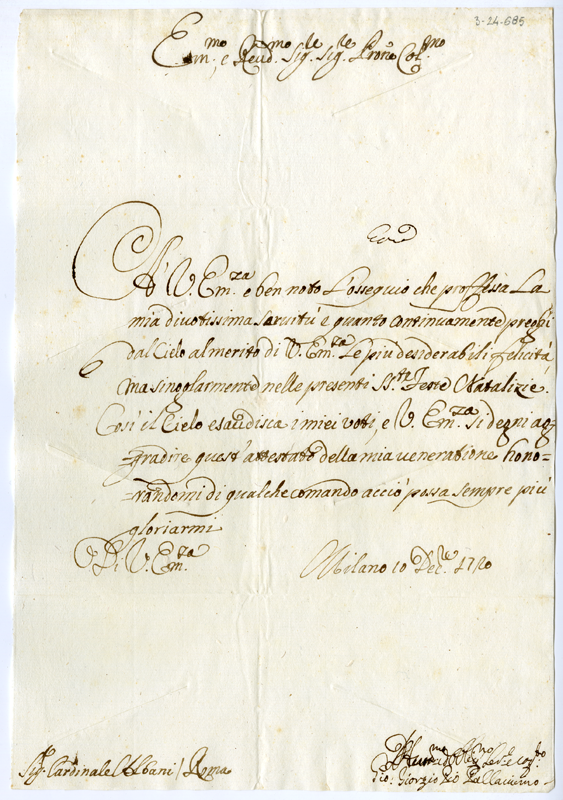 3-24-685
Em.mo, e Reud.mo Sig.re Sig.re Prone Col.mo
A' V. Em.za e ben noto L'osseguio che proffessa La
mia divotissima seruitú e quanto continuamente preghi
dal Cielo al merito di V. Em.za Le piu desiderabili felicitá,
ma singlarmente nelle presenti SS.te Feste Natalizie.
Cosi il Cielo esaudisca i miei voti, e V. Em.za si degni ag=
=gradire quest'attestato della mia veneratione hono=
=randomi di qualche comando acció possa sempre piú
gloriarmi
Di V. Em.za
Milano 10 Dec.re 1720
Sig.r Cardinale Albani / Roma
Gio: Giorgio Pallavicino